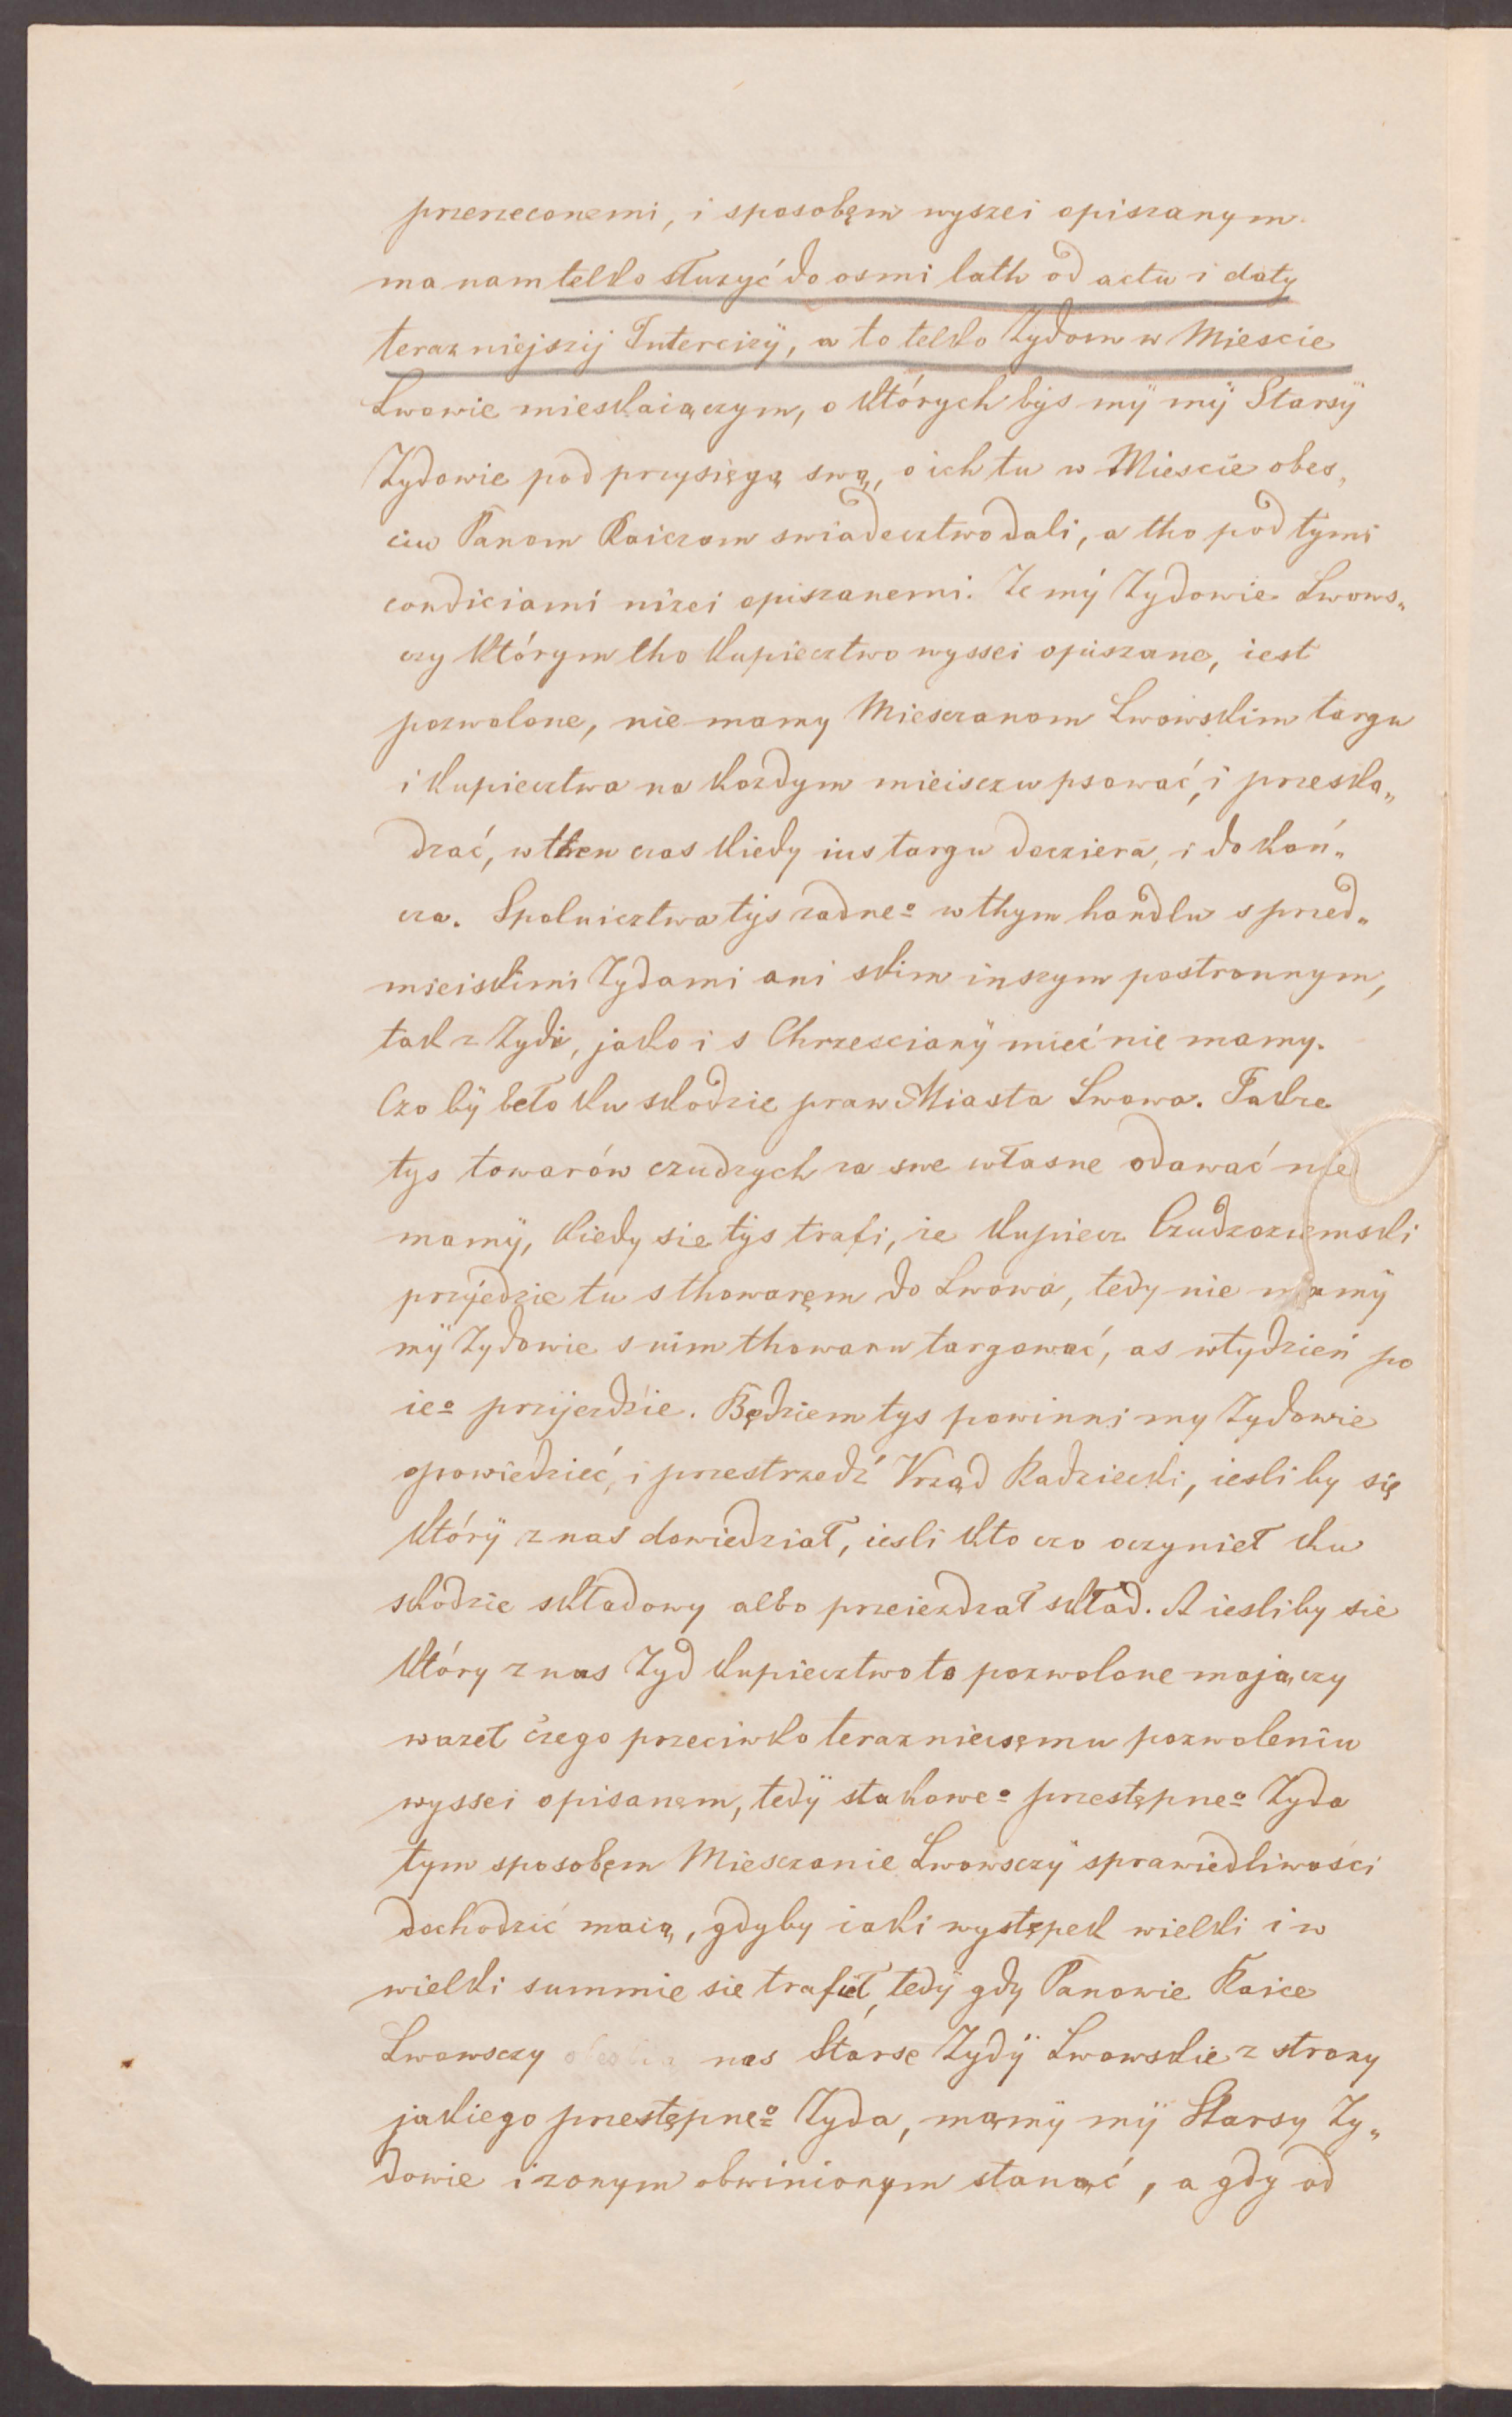 przerzeconemi, i sposobęm wyszei opiszanym
ma nam telko słuzyć do osmi lath od actu i daty
terazniejszij Intercizÿ, a to telko Zydom w Miescie
Lwowie mieskaiączym, o których bÿs mÿ mÿ Starsÿ
Zydowie pod przysięgą swą, o ich tu w Miescie obes„
ciu Panom Raiczom swiadecztwo dali, a tho pod tÿmi
condiciami nizei opiszanemi. Ze mÿ Zydowie Lwows„
czy którym tho kupiecztwo wyssei opiszane, iest
pozwolone, nie mamy Miesczanom Lwowskim targu
i kupiecztwa na kozdym mieisczu psować, i przeska„
dzać, w then czas kiedy ius targu docziera, i dokoń„
cza. Spolnicztwa tÿs zadneº w thym handlu s przed„
mieiskimi Zydami ani skim inszym postronnym,
tak z Zydi, jako i s Chrzescianÿ mieć nie mamy.
Czo bÿ beło ku skodzie praw Miasta Lwowa. Takze
tys towarów czudzych za swe własne odawać nie
mamÿ, kiedy sie tÿs trafi, ze kupiecz Czudzoziemski
przÿjedzie tu s thowaręm do Lwowa, tedy nie mamÿ
mÿ Zydowie s nim thowaru targować, as w tydzień po
ieº przÿjezdzie. Będziem tys powinni my Zydowie
opowiedzieć, i przestrzedź Vrząd Radziecki, iesli by się
którÿ z nas dowiedział, iesli kto czo oczynieł ku
skodzie składowy albo przeiezdzał skład. A iesliby sie
który z nas Zyd kupiecztwo to pozwolone majączy
wazeł czego przeciwko terazniecsęmu pozwoleniu
wyssei opisanęm, tedÿ stakoweº przestępneº Zyda
tym sposobęm Miesczanie Lwowsczÿ sprawiedliwości
dochodzić maią, gdyby iaki występek wielki i w
wielki summie sie trafieł, tedÿ gdy Panowie Raice
Lwowsczy nas Starse Zydÿ Lwowskie z strony
jakiego przestępneº Zyda, mamÿ mÿ Starsy Zy„
dowie i zonym obwinionym stanąć, a gdy od